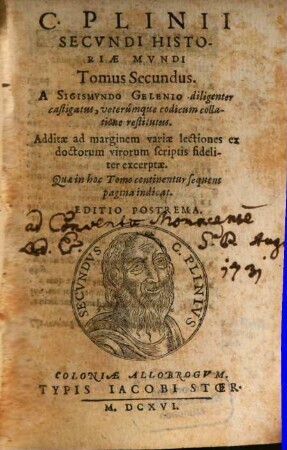 C. PLINII
SECVNDI HISTO-
RIÆ MVNDI
Tomus Secundus.
A SIGISMVNDO GELENIO diligenter
castigatus, veterúmque codicum colla-
tione restitutus.
Additæ ad marginem variæ lectiones ex
doctorum virorum scriptis fideli-
ter excerptæ.
Quæ in hoc Tomo continentur sequens
pagina indicat.
EDITIO POSTREMA.
ad Conventū Monacensē
S. P. Aug
1731
SECVNDVS C. PLINIVS
COLONIÆ ALLOBROGVM.
TYPIS IACOBI STOER.
M. DCXVI.